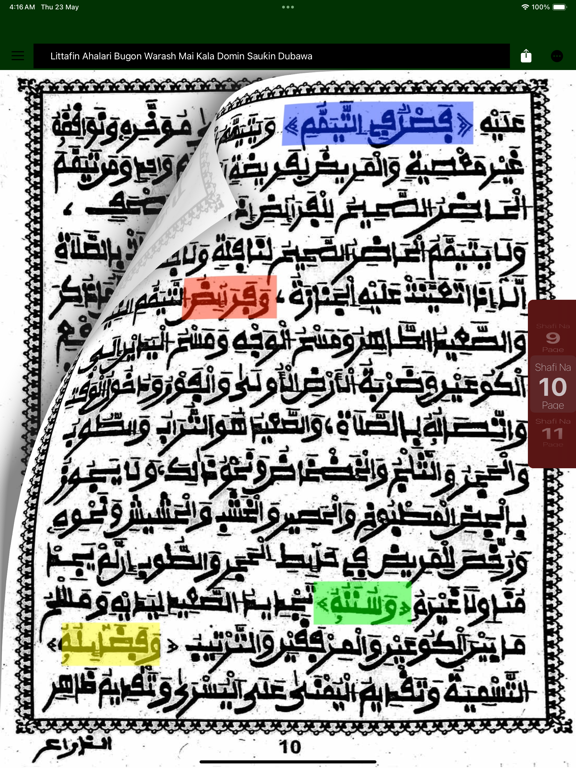 4:16 AM Thu 23 May
100%
Littafin Ahalari Bugon Warash Mai Kala Domin Saukin Dubawa
عليه ﴿فصل في التيمم﴾ ويتيمم
غير معصية والمريض لفريضة
الحاضر الصحيح للفرائض
ولا يتيمم الحاضر الصحيح لنافلة ولا
إلا إذا تعينت عليه الجنازة، وفرائض التيمم
والصعيد الطاهر ومسح الوجه ومسح اليدين إلى
الكوعين وضربة الأرض الأولى والفور ودخول الوقت
واتصاله بالصلاة، والصعيد هو التراب والطوب
والحجر والثلج والخضخاض ونحو ذلك، ولا يجوز
بالجص المطبوخ والحصير والخشب والحشيش ونحوه
ورخص للمريض في حائط الحجر والطوب إن لم يجد
مناولا غيره ﴿وسننه﴾ تجديد الصعيد ليديه ومسح
ما بين الكوعين والمرفقين والترتيب ﴿وفضائله﴾
التسمية وتقديم اليمنى على اليسرى وتقديم ظاهر
الذراع
10
Shafi Na
9
Page
Shafi Na
10
Page
Shafi Na
11
Page